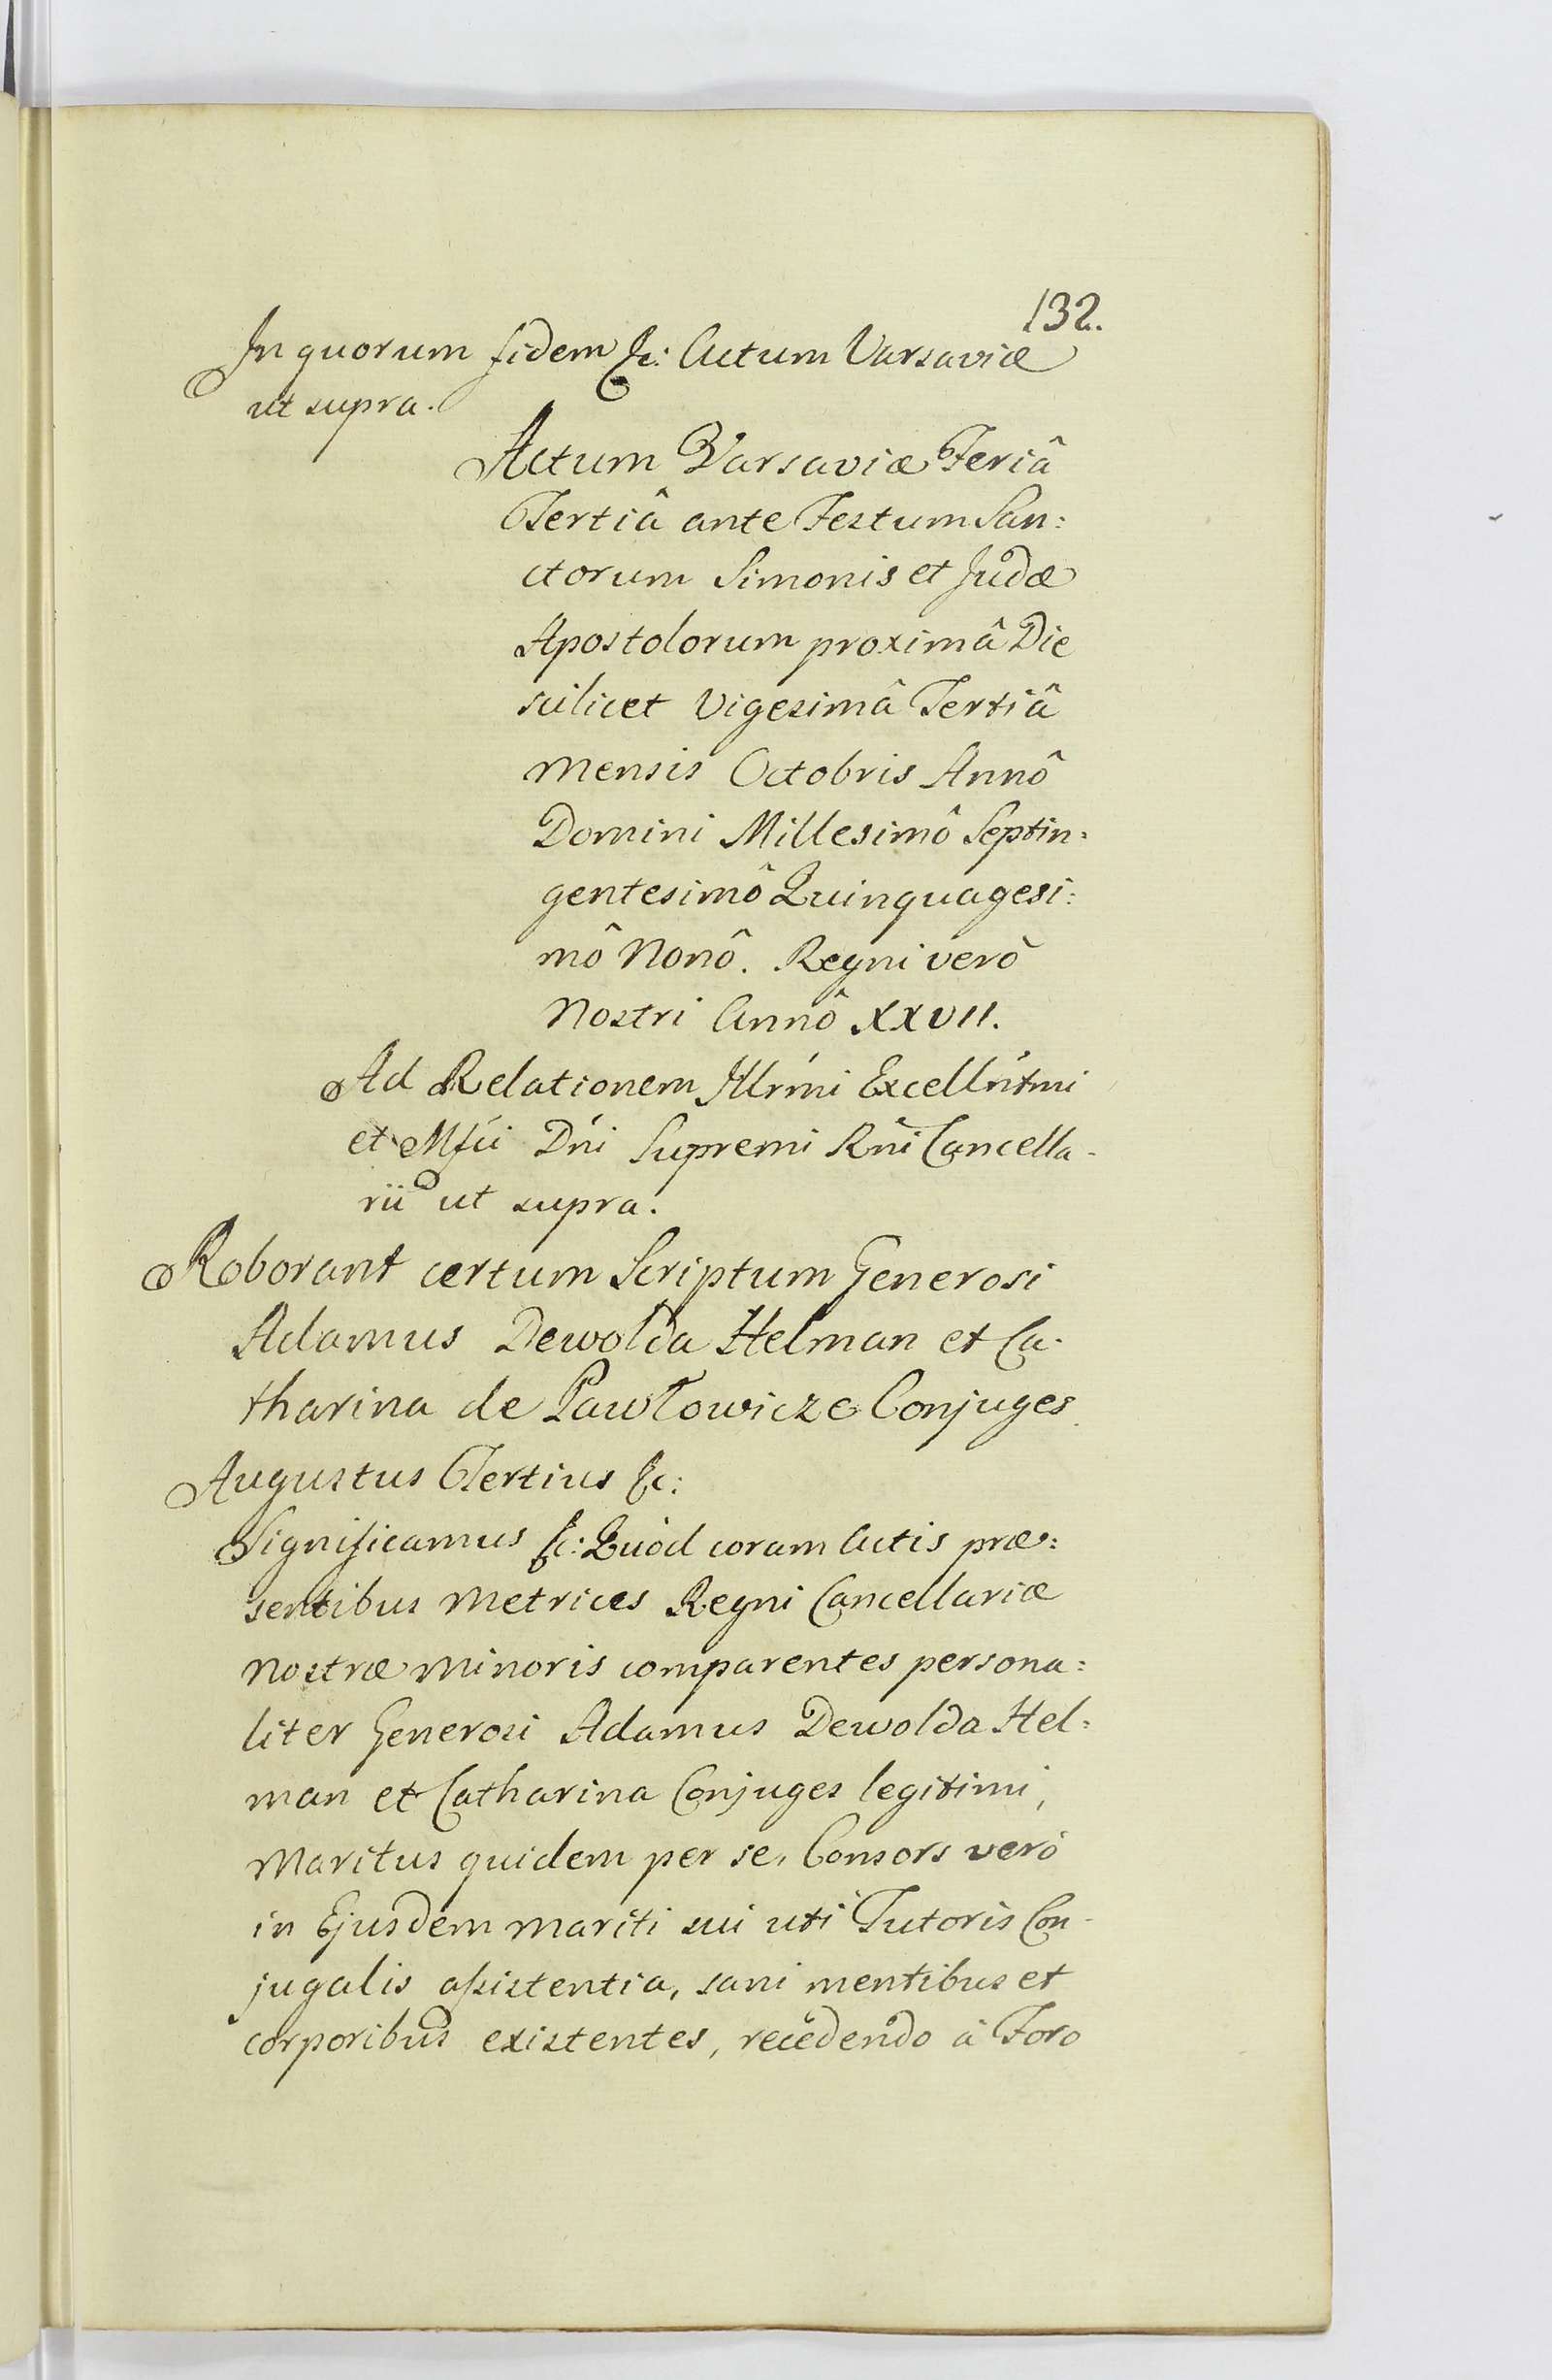 132.
In quorum fidem &c: Actum Varsaviæ
ut supra.
Actum Varsaviæ Feriâ
Tertiâ ante Festum San:
ctorum Simonis et Judæ
Apostolorum proximâ Die
scilicet Vigesimâ Tertiâ
Mensis Octobris Annô
Domini Millesimô Septin:
gentesimô Quinquagesi:
mô Nonô. Regni verò
Nostri Annô XXVII.
Ad Relationem Illrmi Excellntmi
et Mfci Dni Supremi Rni Cancella-
rii ut supra.
Roborant certum Scriptum Generosi
Adamus Dewolda Helman et Ca-
tharina de Pawłowicze Conjuges
Augustus Tertius &c:
Significamus &c: Quòd coram Actis præ:
sentibus Metrices Regni Cancellariæ
Nostræ Minoris comparentes persona:
liter Generosi Adamus Dewolda Hel:
man et Catharina Conjuges legitimi,
Maritus quidem per se, Consors verò
in Ejusdem mariti sui uti Tutoris Con-
jugalis assistentia, sani mentibus et
corporibus existentes, recedendo à Foro